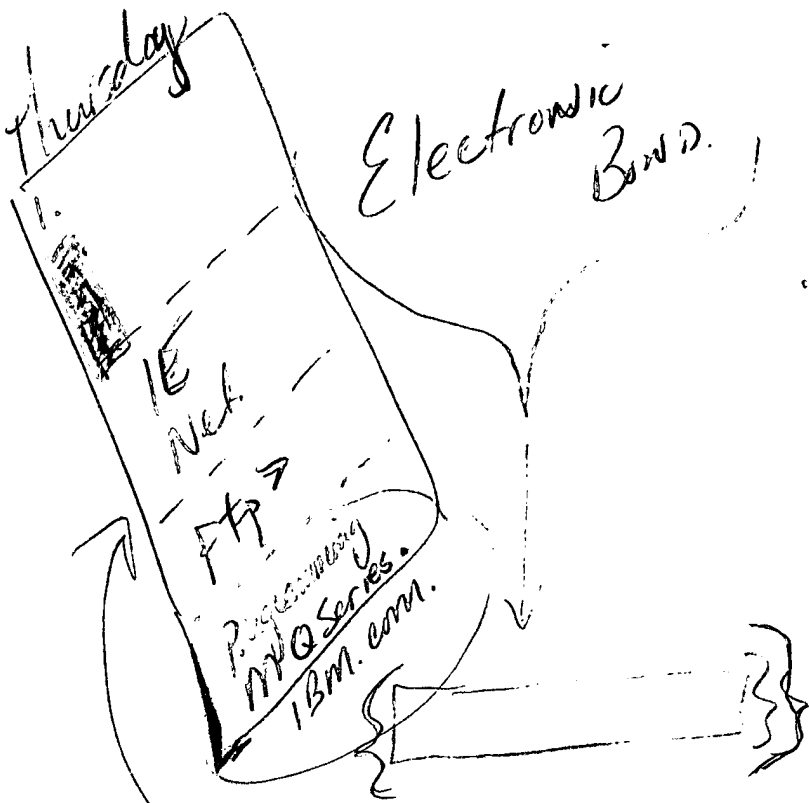 Thursday
Electronic
Bond.
1.
IE
Net.
Ftp
Programming
MQ Series.
IBM. com.